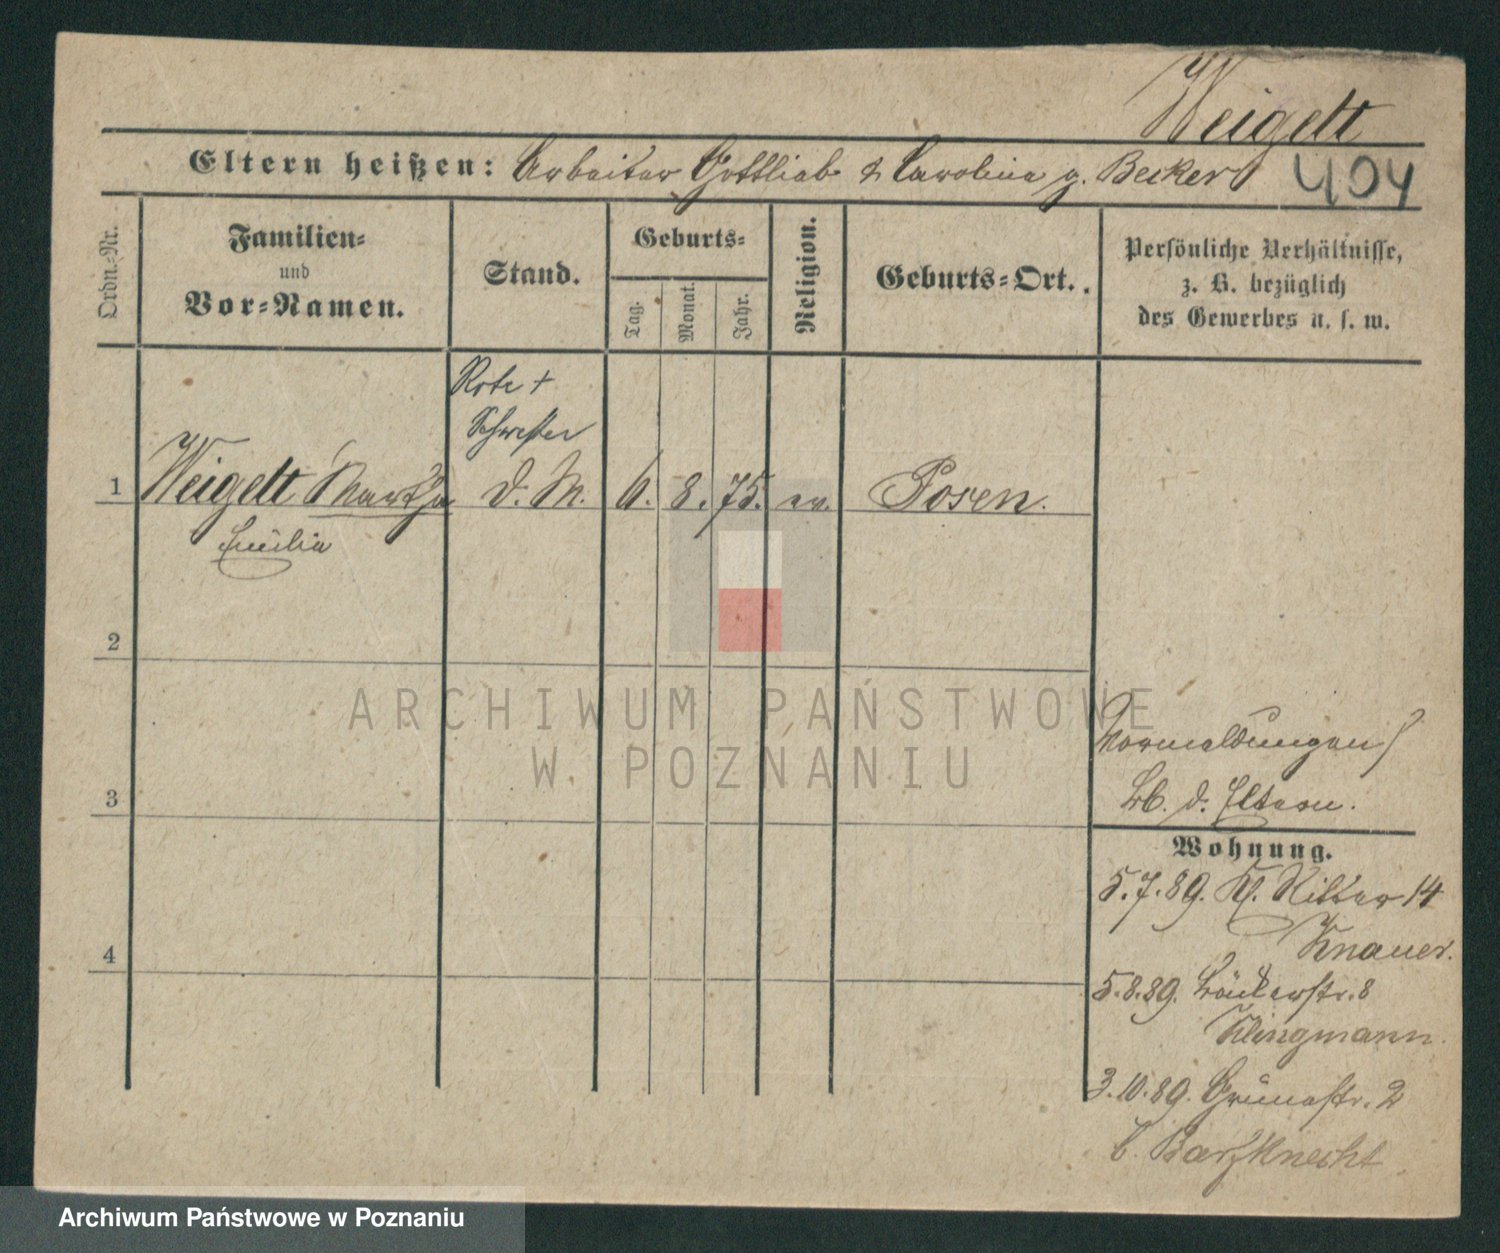 Weigelt
Eltern heißen: Arbeiter Gottlieb & Caroline g. Becker
404
Ordn.-Nr.
Familien-
und
Vor-Namen.
Stand.
Geburts-
Tag.
Monat.
Jahr.
Religion.
Geburts-Ort.
Persönliche Verhältnisse,
z. B. bezüglich
des Gewerbes u. s. w.
Rote +
Schwester
1 Weigelt Martha d. M. 6. 8. 75. ev. Posen.
Emilie
2
ARCHIWUM PAŃSTWOWE
W POZNANIU
3
4
Vormeldungen
b. d. Eltern.
Wohnung.
5.7.89. Kl. Ritter 14
Knauer.
5.8.89. Bäckerstr. 8
Klingmann.
3.10.89. Grünestr. 2
b. Barzknecht
Archiwum Państwowe w Poznaniu